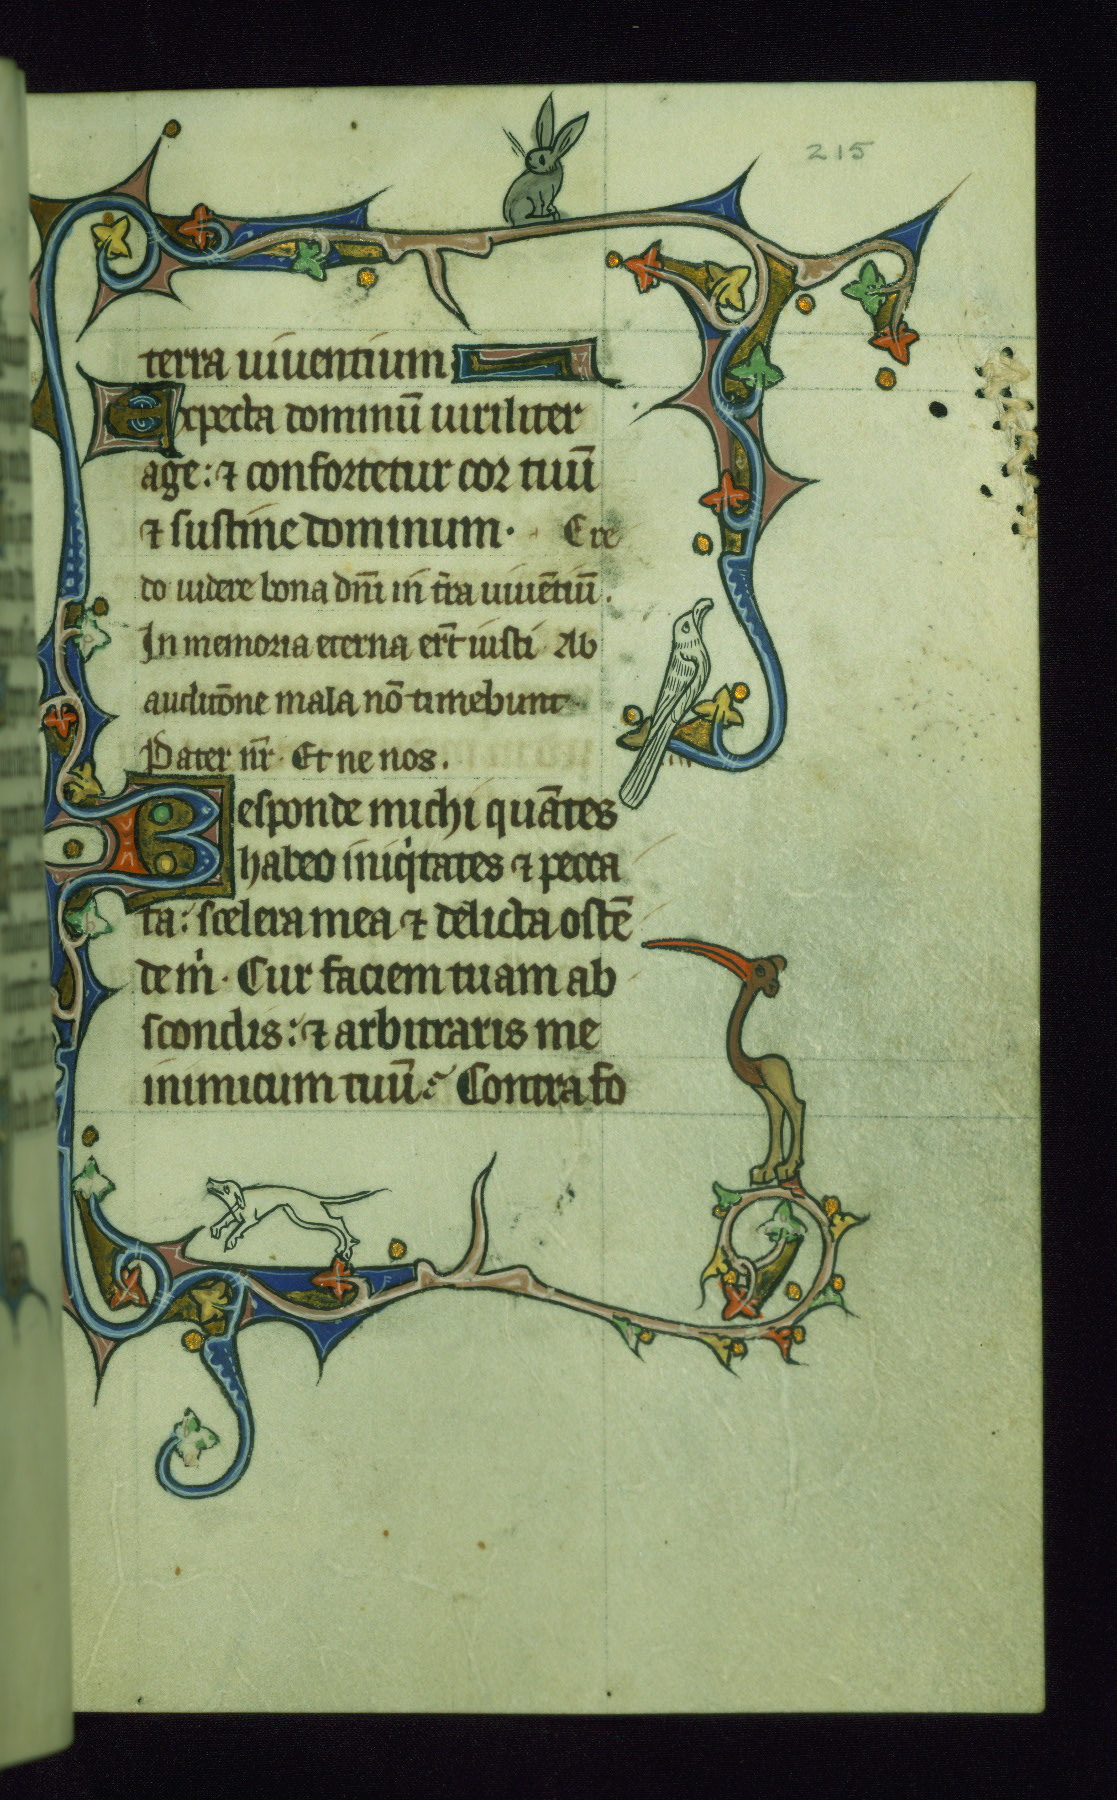 215
terra uiuentium
Expecta dominū uiriliter
age: ⁊ confortetur cor tuū
⁊ sustine dominum. Cre
do uidere bona dn̄i in t̄ra uiuētiū.
In memoria eterna er̄t iusti Ab
auditōne mala nō timebunt
Pater nr̄ Et ne nos.
Responde michi quātas
habeo iniqͥtates ⁊ pecca
ta: scelera mea ⁊ delicta ostē
de mͥ. Cur faciem tuam ab
scondis: ⁊ arbitraris me
inimicum tuū Contra fo